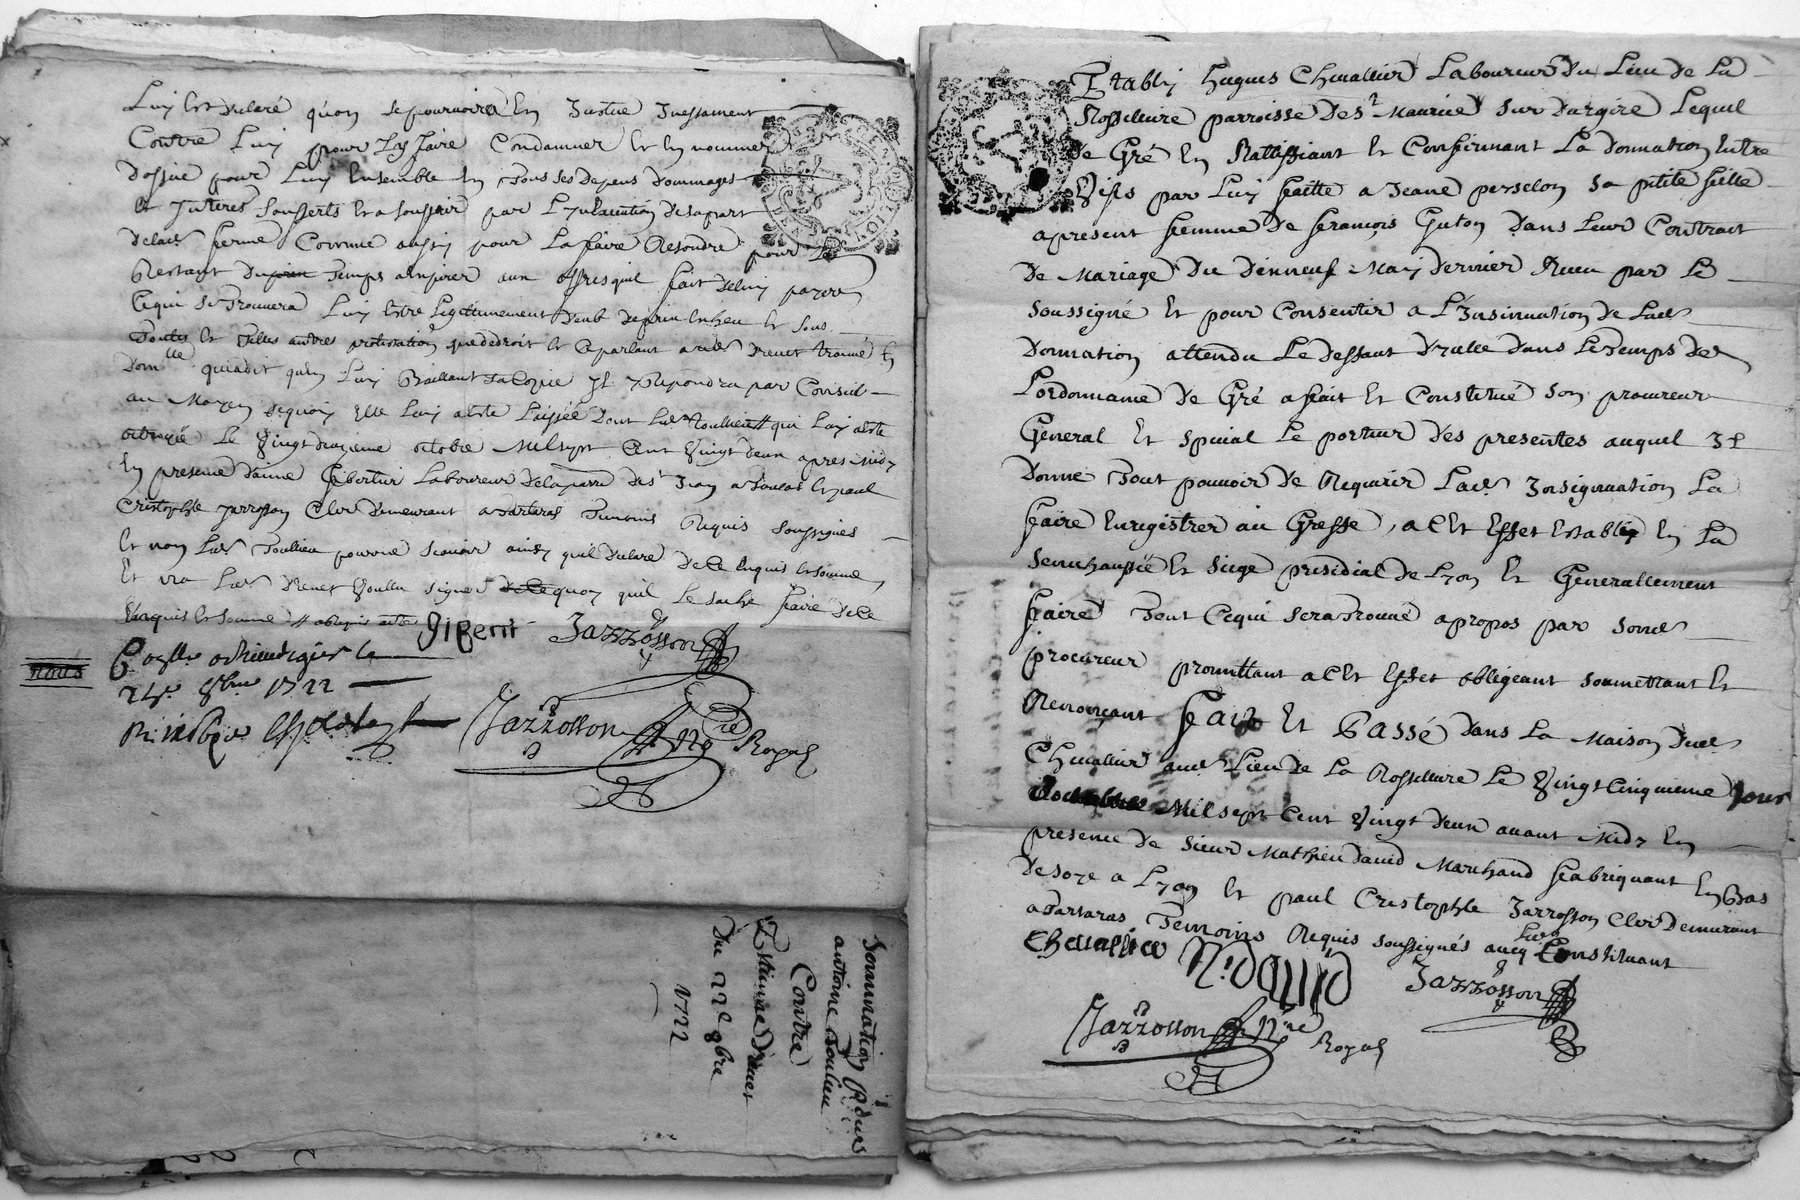 Luy est declaré qu'on se pourvoira En Justice Incessament
Contre Luy pour Les faire Condamner Et En nommer
d'office pour Luy Ensemble En tous ses depens dommages
Et Interes soufferts Et a souffrir par L'Inexecution de sa part
de lad. ferme Comme aussy pour La faire Resoudre pour Le
Restant du temps a expirer aux offres quil fait de luy payer
Ce qui se trouvera Luy Estre Legitimement deub Et sous
Toutes Et Telles autres protestations que de droit Et Ce parlant aud. drevet trouvé En
Dom.lle qui a dit qu'en Luy Baillant sa Copie Il Repondra par Conseil
au Moyen de quoy Elle Luy a este Laissée Dont Led. qui Luy a este
octroyé Le Vingt deuxieme octobre Mil sept Cent Vingt deux apres Midy
En presence Laboureur de la parr. de St. Jean Et paul
Cristophle Jarrosson Clerc Demeurant a Tartaras Temoins Requis soussignés
Et non Led. pour ne scavoir ainsy quil declare de Ce Enquis Et sommé
Et Led. drevet signer quoy quil Le sache faire de Ce
Enquis Et sommé
Gibert Jarrosson
24e 8bre 1722
Jarrosson Nore Royal
Sommation
antoine
Contre
Estienne Drevet
Du 22e 8bre
1722
Etably hugues Chevallier Laboureur du Lieu de La
Rossilliere parroisse de St. Maurice sur dargoire Lequel
de Gré En Rattiffiant Et Confirmant La donnation Entre
Vifs par Luy faitte a Jeane perselon sa petite fille
a present femme de francois Guton dans Leur Contrait
de Mariage du dixneuf May dernier Receu par Le
soussigné Et pour Consentir a L'Insinuation de Lad.
donnation attendu Le deffaut d'Icelle dans Le Temps de
L'ordonnance de Gré a fait Et Constitué son procureur
General Et special Le porteur des presentes auquel Il
donne Tout pouvoir de Requerir Lad. Insignuation La
faire Enregistrer au Greffe, a Cet Effet Estably En La
senechaussée Et siege presidial de Lyon Et Generallement
faire Tout Ce qui sera Trouvé a propos par sond.
procureur promettant a Cet Effet obligeant soumettant Et
Renonçant fait Et Passé dans La Maison dud.
Chevallier aud. Lieu de La Rossilliere Le Vingt Cinquieme Jour
Mil sept Cent Vingt deux avant Midy En
presence de sieur Mathieu David Marchand fabriquant En Bas
de soye a Lyon Et paul Cristophle Jarrosson Clerc Demeurant
a Tartaras Temoins Requis soussignés avecq Led. Constituant
Chevallier M. David Jarrosson
Jarrosson Nre Royal